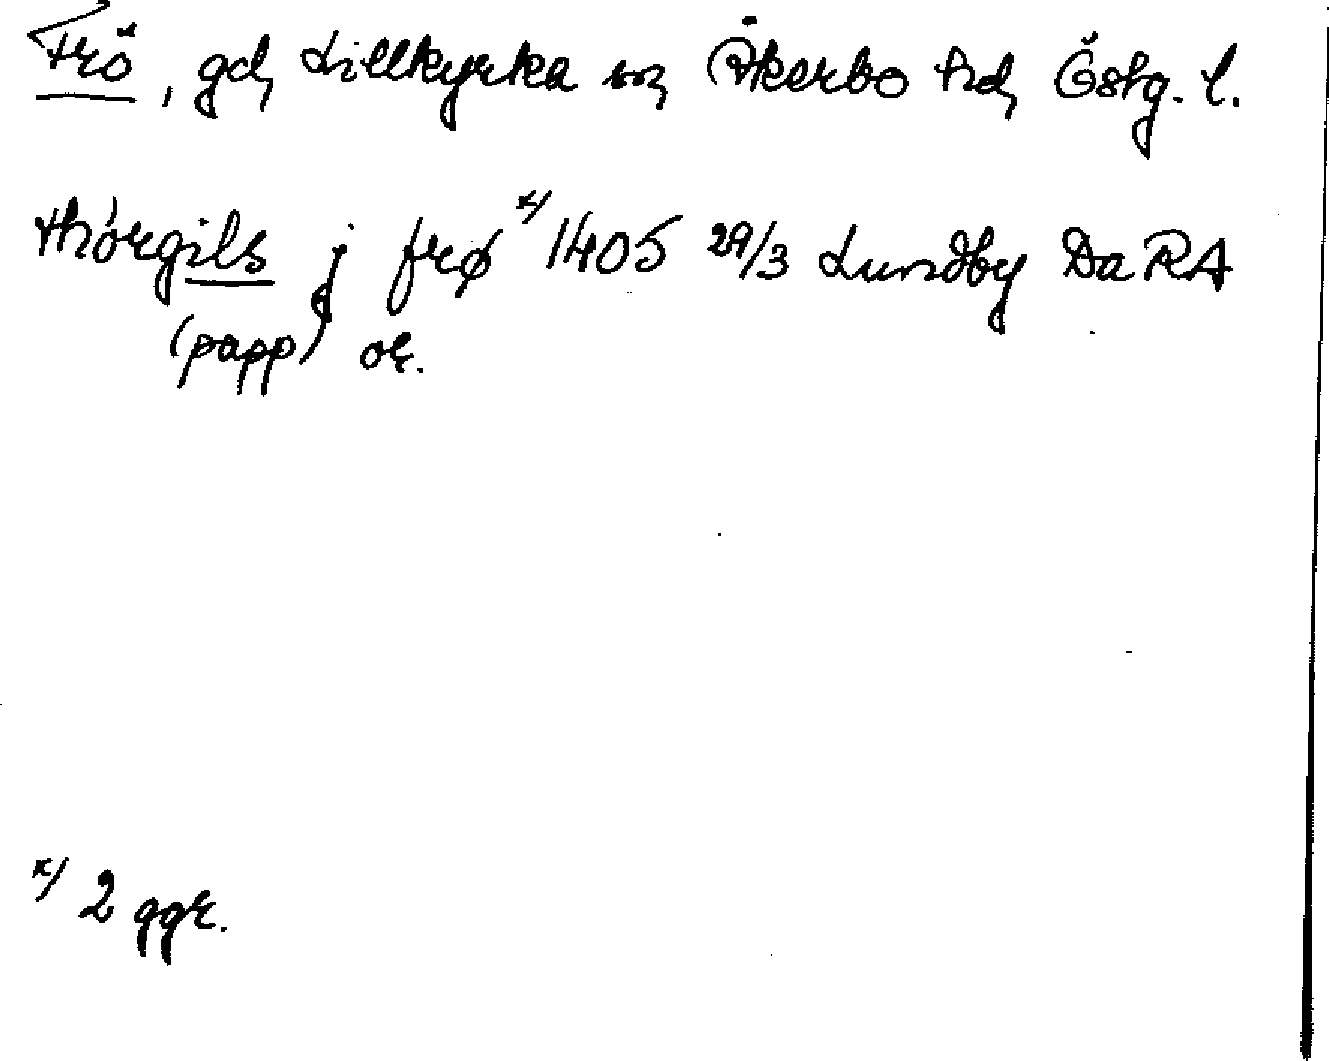 Frö, gd, Lillkyrka sn, Åkerbo hd, Östg. l.
thörgils j frø x/ 1405 29/3 Lundby Da RA
(papp) or.
x/ 2 ggr.